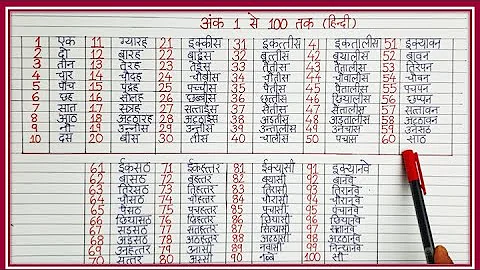 अंक 1 से 100 तक (हिन्दी)
1 एक 11 ग्यारह 21 इक्कीस 31 इकत्तीस 41 इकतालीस 51 इक्यावन
2 दो 12 बारह 22 बाईस 32 बत्तीस 42 बयालीस 52 बावन
3 तीन 13 तेरह 23 तेईस 33 तैंतीस 43 तैंतालीस 53 तिरेपन
4 चार 14 चौदह 24 चौबीस 34 चौंतीस 44 चौवालीस 54 चौवन
5 पाँच 15 पंद्रह 25 पच्चीस 35 पैंतीस 45 पैंतालीस 55 पचपन
6 छह 16 सोलह 26 छब्बीस 36 छत्तीस 46 छियालीस 56 छप्पन
7 सात 17 सत्रह 27 सत्ताईस 37 सैंतीस 47 सैंतालीस 57 सत्तावन
8 आठ 18 अट्ठारह 28 अट्ठाईस 38 अड़तीस 48 अड़तालीस 58 अट्ठावन
9 नौ 19 उन्नीस 29 उन्तीस 39 उन्तालीस 49 उनचास 59 उनसठ
10 दस 20 बीस 30 तीस 40 चालीस 50 पचास 60 साठ
61 ईकसठ 71 ईकहत्तर 81 ईक्यासी 91 इक्यानवे
62 बासठ 72 बहत्तर 82 बयासी 92 बानवे
63 तिरसठ 73 तिहत्तर 83 तिरासी 93 तिरानवे
64 चौसठ 74 चौहत्तर 84 चौरासी 94 चौरानवे
65 पैंसठ 75 पचहत्तर 85 पचासी 95 पंचानवे
66 छियासठ 76 छिहत्तर 86 छियासी 96 छियानवे
67 सड़सठ 77 सतहत्तर 87 सित्यासी 97 सत्तानवे
68 अड़सठ 78 अठहत्तर 88 अठासी 98 अट्ठानवे
69 उनहत्तर 79 उन्यासी 89 नवासी 99 निन्यानवे
70 सत्तर 80 अस्सी 90 नब्बे 100 सौ